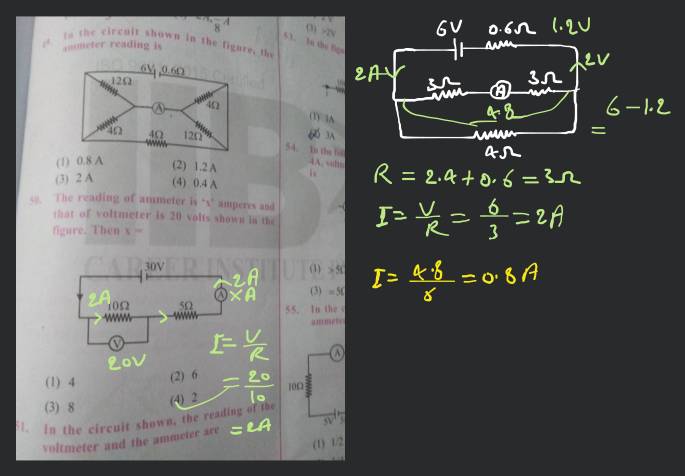 49. In the circuit shown in the figure, the
ammeter reading is
6V 0.6Ω
12Ω
4Ω
A
4Ω
4Ω
12Ω
(1) 0.8 A
(2) 1.2 A
(3) 2 A
(4) 0.4 A
50. The reading of ammeter is 'x' amperes and
that of voltmeter is 20 volts shown in the
figure. Then x =
CAREER INSTITUTE
30V
2A
A
xA
2A
10Ω
5Ω
V
20V
I = V/R
= 20/10
= 2A
(1) 4
(2) 6
(3) 8
(4) 2
51. In the circuit shown, the reading of the
voltmeter and the ammeter are
53. In the figu
(1) 1A
3A
54. In the
4A, volt
is
55. In the c
ammete
A
10Ω
5V
(1) 1/2
6V 0.6Ω 1.2V
2A
2V
3Ω A 3Ω
4.8
6-1.2
=
4Ω
R = 2.4 + 0.6 = 3Ω
I = V/R = 6/3 = 2A
I = 4.8/6 = 0.8A